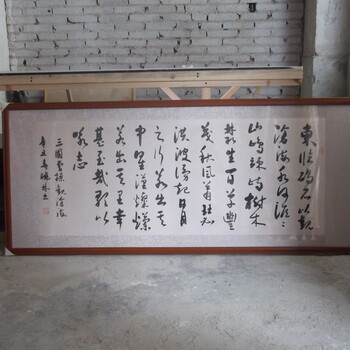 東临碣石以觀
滄海水何澹〻
山島竦峙樹木
叢生百草豐
茂秋風萧瑟
洪波湧起日月
之行若出其
中星漢燦爛
若出其里幸
甚至哉歌以
咏志
三國曹操觀滄海
辛丑春